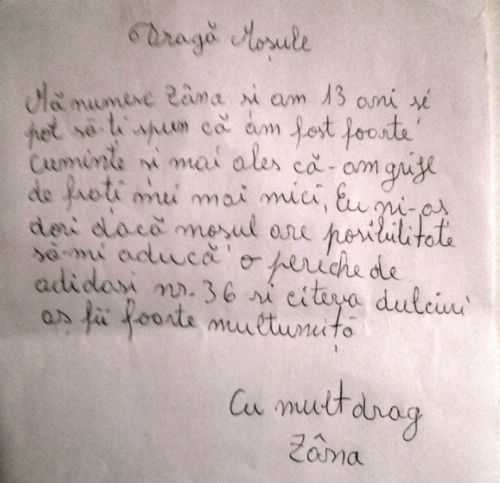 Dragă Moșule
Mă numesc Zâna si am 13 ani si
pot să-ti spun că am fost foarte
cuminte si mai ales că-am grije
de frați mei mai mici, Eu mi-as
dori dacă mosul are posibilitate
să-mi aducă o periche de
adidasi nr. 36 si citeva dulciuri
aș fii foarte multumită
Cu mult drag
Zâna